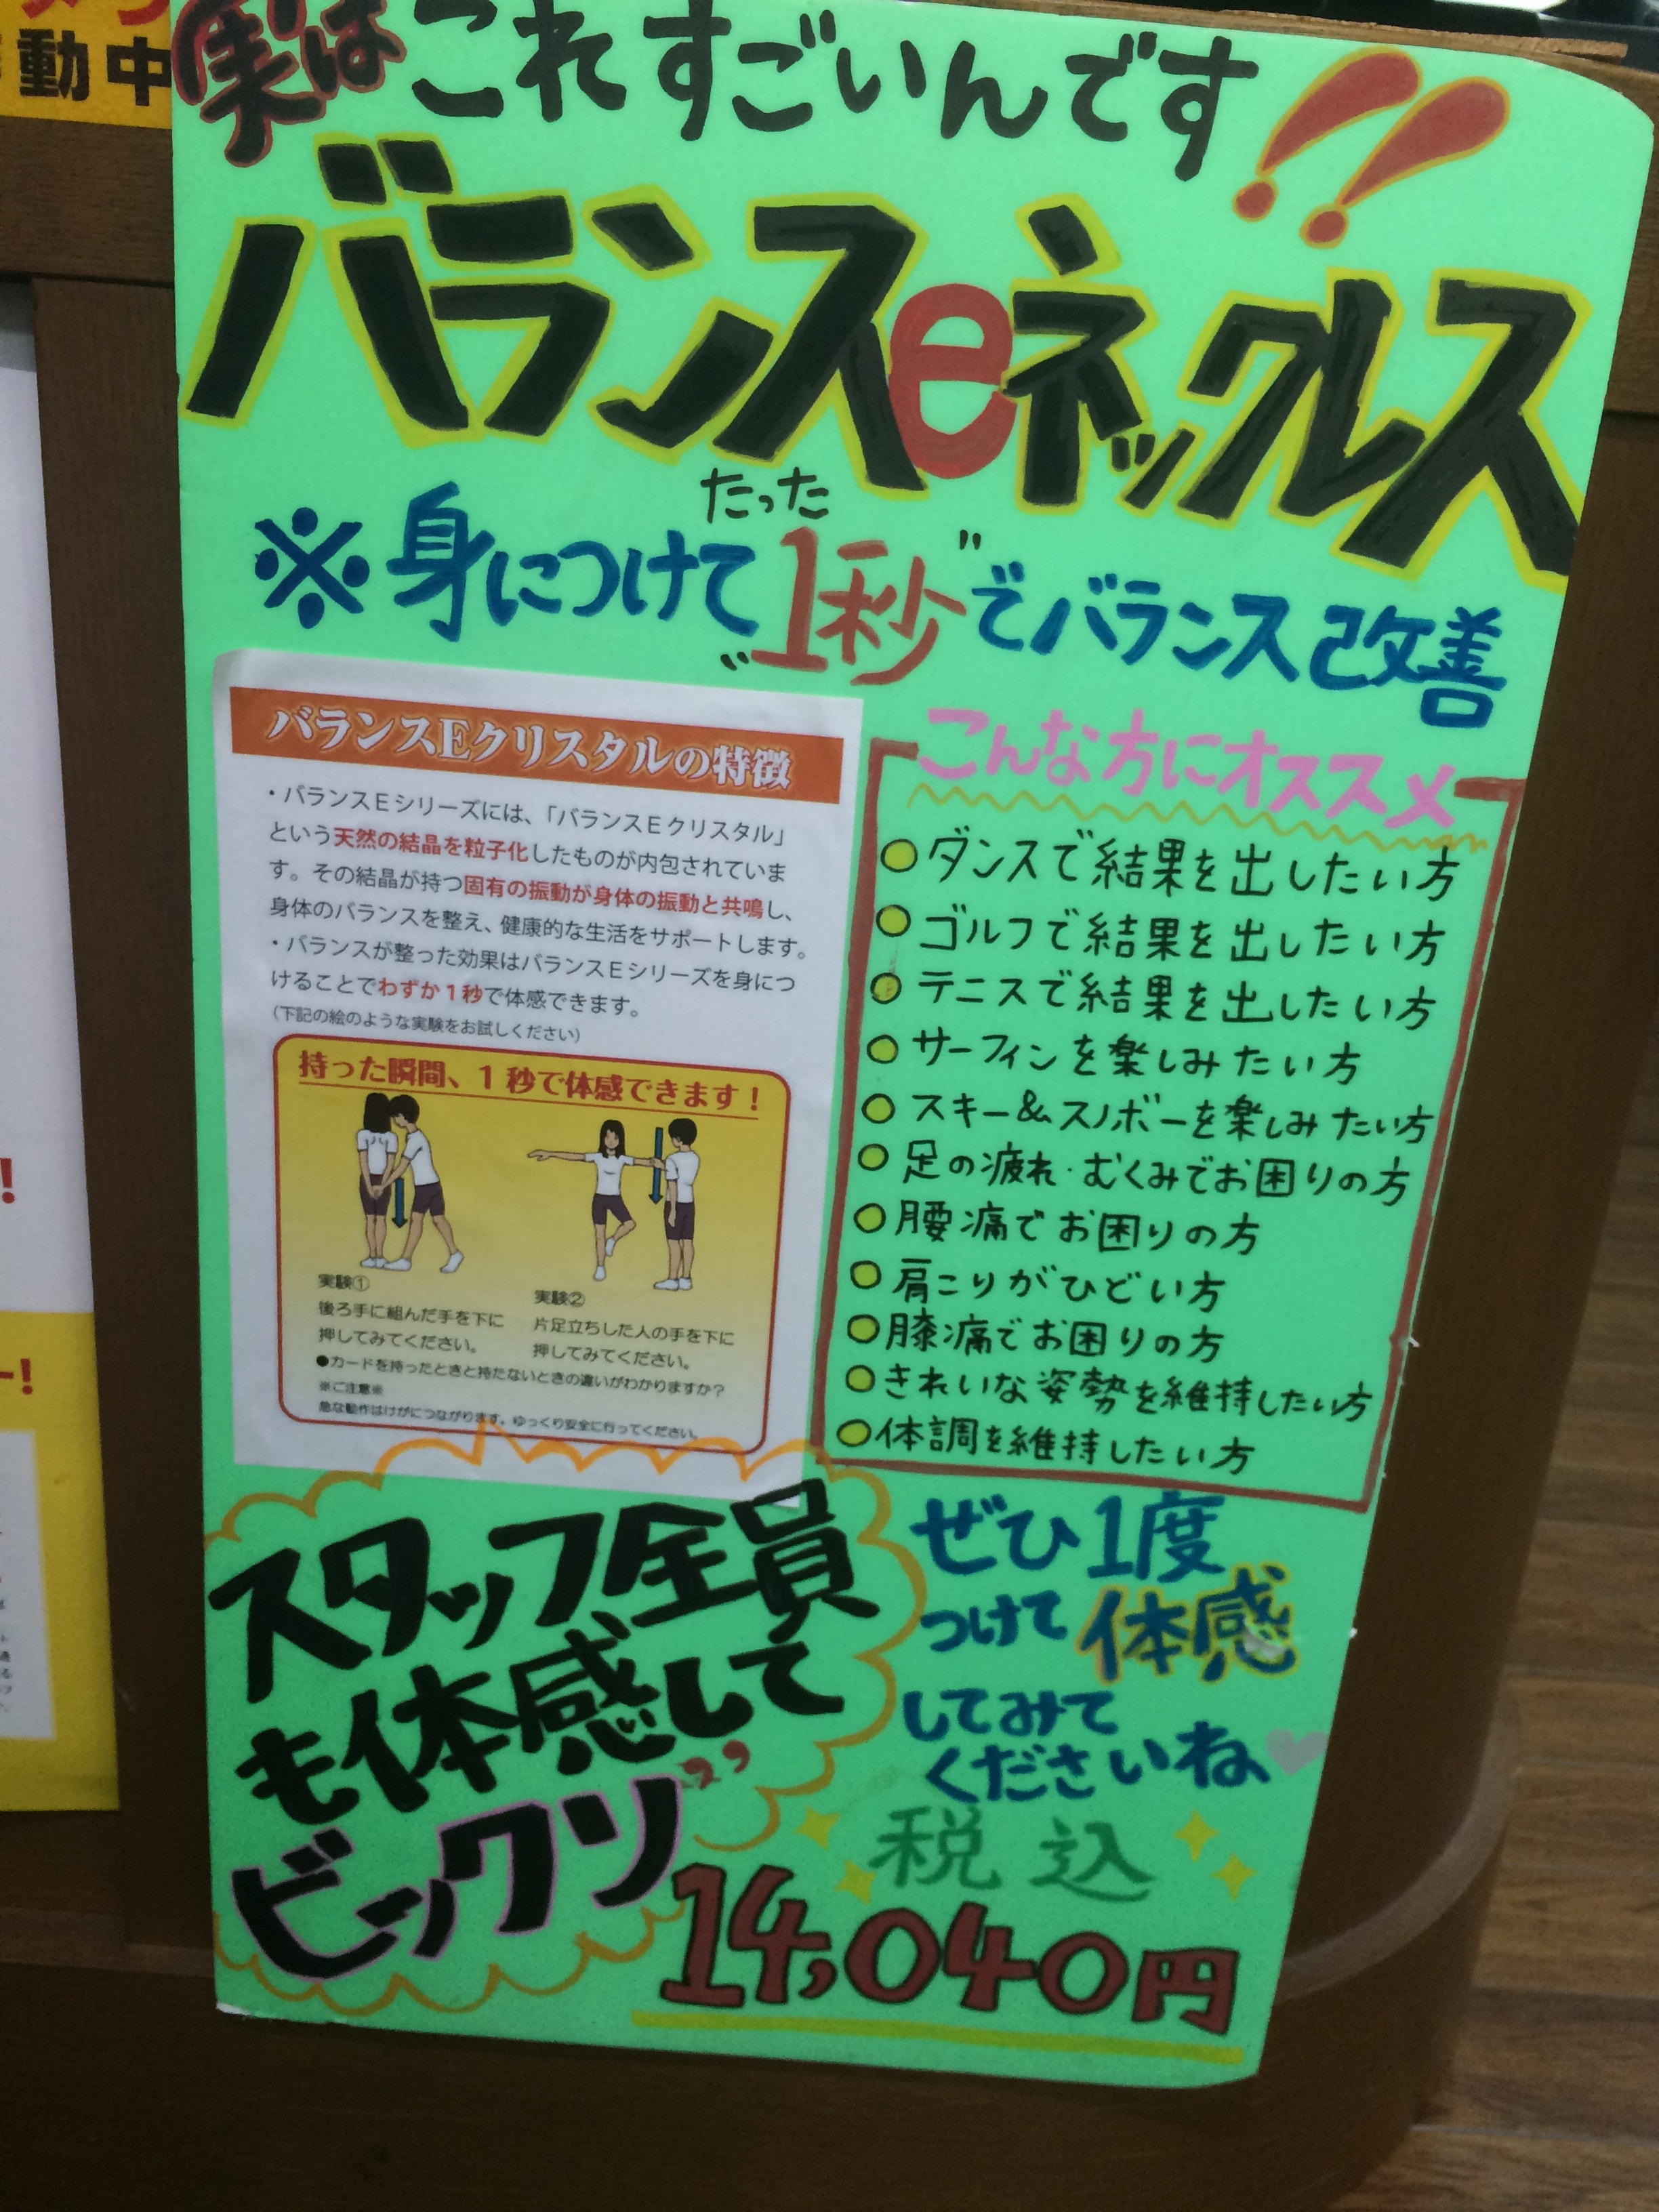 動中
実はこれすごいんです!!
バランスeネックレス
たった
※身につけて"1秒"でバランス改善
バランスEクリスタルの特徴
・バランスEシリーズには、「バランスEクリスタル」
という天然の結晶を粒子化したものが内包されていま
す。その結晶が持つ固有の振動が身体の振動と共鳴し、
身体のバランスを整え、健康的な生活をサポートします。
・バランスが整った効果はバランスEシリーズを身につ
けることでわずか1秒で体感できます。
(下記の絵のような実験をお試しください)
持った瞬間、1秒で体感できます!
実験①
後ろ手に組んだ手を下に
押してみてください。
実験②
片足立ちした人の手を下に
押してみてください。
●カードを持ったときと持たないときの違いがわかりますか?
※ご注意※
急な動作はけがにつながります。ゆっくり安全に行ってください。
こんな方にオススメ
ダンスで結果を出したい方
ゴルフで結果を出したい方
テニスで結果を出したい方
サーフィンを楽しみたい方
スキー&スノボーを楽しみたい方
足の疲れ・むくみでお困りの方
腰痛でお困りの方
肩こりがひどい方
膝痛でお困りの方
きれいな姿勢を維持したい方
体調を維持したい方
スタッフ全員
も体感して
ビックリ
ぜひ1度
つけて体感
してみて
くださいね
税込
14,040円